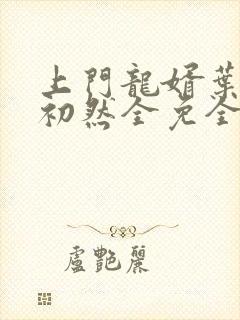 上門龍婿葉
初然全免全
盧艷麗